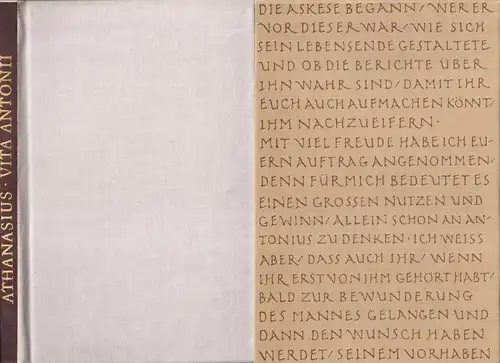 ATHANASIUS · VITA ANTONII
DIE ASKESE BEGANN/WER ER
VOR DIESER WAR/WIE SICH
SEIN LEBENSENDE GESTALTETE
UND OB DIE BERICHTE ÜBER
IHN WAHR SIND/DAMIT IHR
EUCH AUCH AUFMACHEN KÖNNT/
IHM NACHZUEIFERN·
MIT VIEL FREUDE HABE ICH EU-
ERN AUFTRAG ANGENOMMEN/
DENN FÜR MICH BEDEUTET ES
EINEN GROSSEN NUTZEN UND
GEWINN/ALLEIN SCHON AN AN-
TONIUS ZU DENKEN·ICH WEISS
ABER/DASS AUCH IHR/WENN
IHR ERST VON IHM GEHÖRT HABT/
BALD ZUR BEWUNDERUNG
DES MANNES GELANGEN UND
DANN DEN WUNSCH HABEN
WERDET/SEINEM VORHABEN